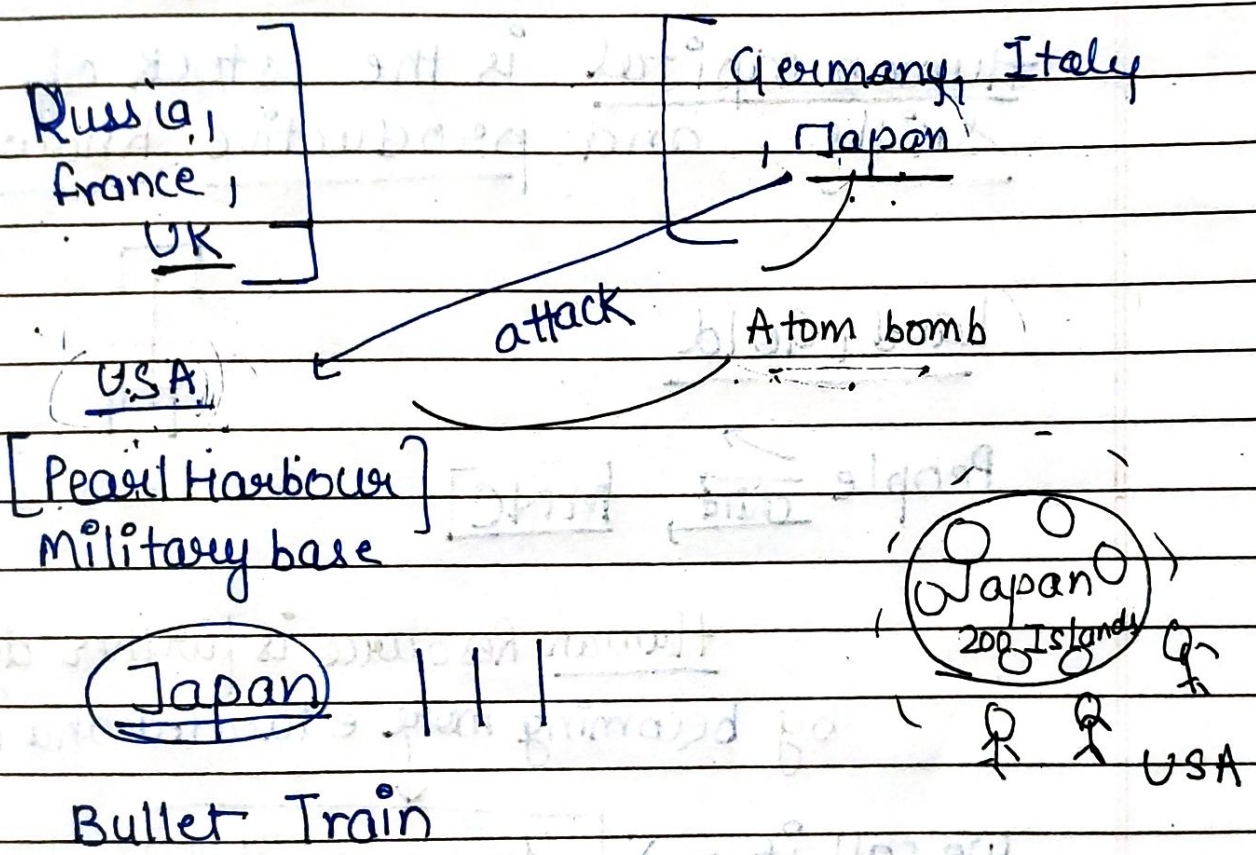 Russia,
france,
UK
Germany, Italy
, Japan
attack
Atom bomb
U.S.A
[Pearl Harbour]
Military base
Japan
200 Islands
USA
Japan
Bullet Train